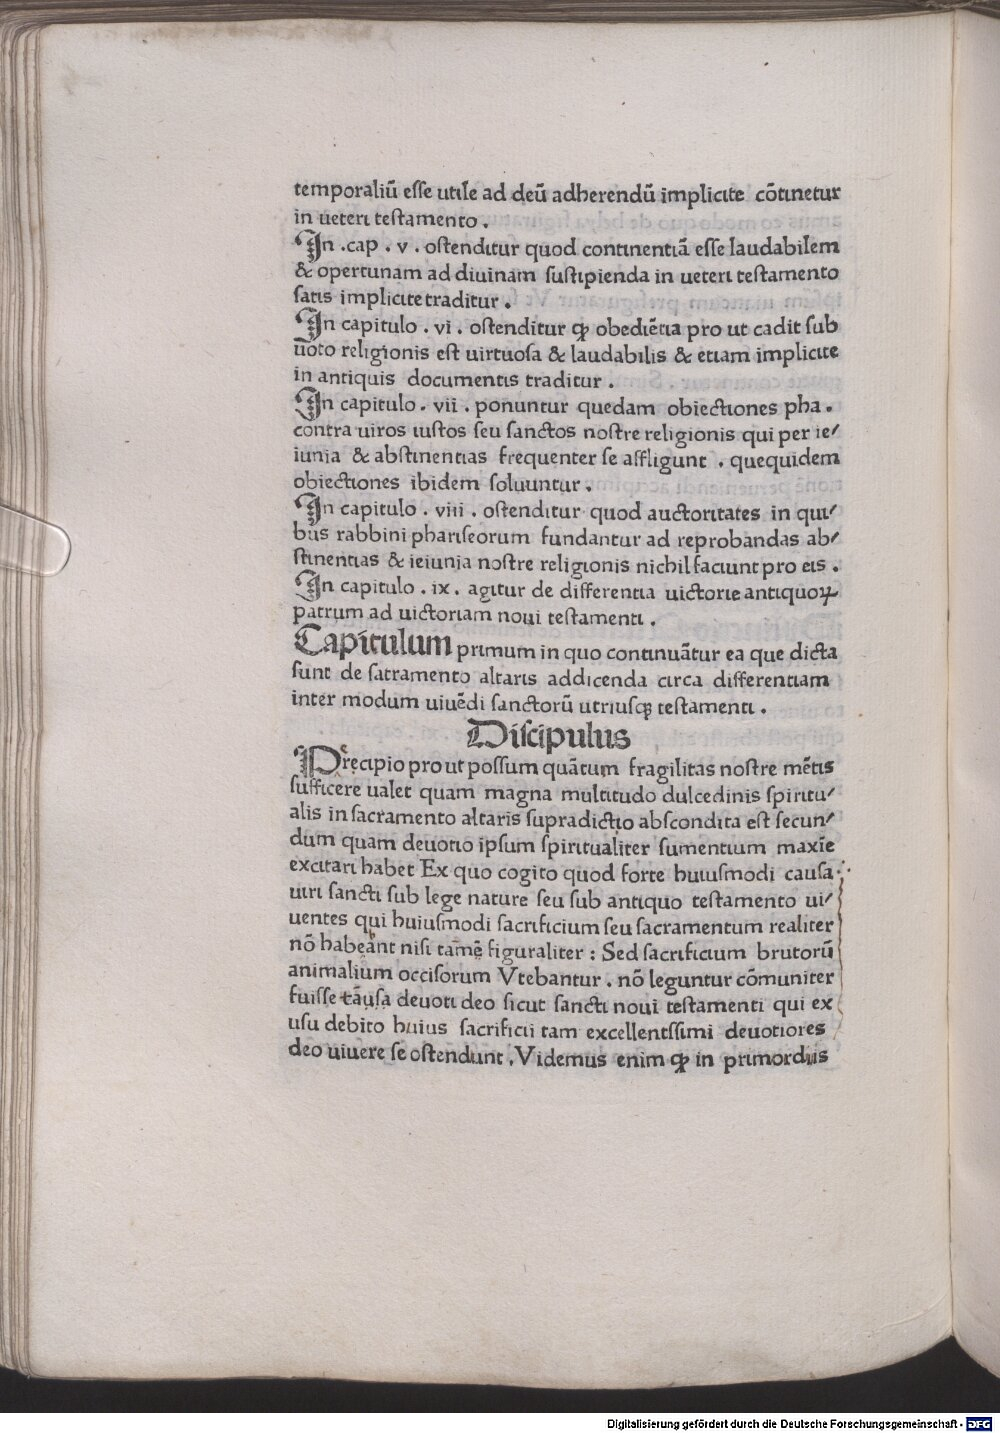 temporaliū esse utile ad deū adherendū implicite cōtinetur
in ueteri testamento .
In .cap . v . ostenditur quod continentiā esse laudabilem
& opertunam ad diuinam sustipienda in ueteri testamento
satis implicite traditur .
In capitulo . vi . ostenditur ꝙ obediētia pro ut cadit sub
uoto religionis est uirtuosa & laudabilis & etiam implicite
in antiquis documentis traditur .
In capitulo . vii . ponuntur quedam obiectiones pha .
contra uiros iustos seu sanctos nostre religionis qui per ie/
iunia & abstinentias frequenter se affligunt . quequidem
obiectiones ibidem soluuntur .
In capitulo . viii . ostenditur quod auctoritates in qui/
bus rabbini phariseorum fundantur ad reprobandas ab/
stinentias & ieiunia nostre religionis nichil faciunt pro eis .
In capitulo . ix . agitur de differentia uictorie antiquoꝝ
patrum ad uictoriam noui testamenti .
Capitulum primum in quo continuātur ea que dicta
sunt de sacramento altaris addicenda circa differentiam
inter modum uiuēdi sanctorū utriusqꝫ testamenti .
Discipulus
Precipio pro ut possum quātum fragilitas nostre mētis
sufficere ualet quam magna multitudo dulcedinis spiritu/
alis in sacramento altaris supradictio abscondita est secun/
dum quam deuotio ipsum spiritualiter sumentium maxīe
excitari habet Ex quo cogito quod forte huiusmodi causa
uiri sancti sub lege nature seu sub antiquo testamento ui/
uentes qui huiusmodi sacrificium seu sacramentum realiter
nō habeant nisi tamē figuraliter : Sed sacrificium brutorū
animalium occisorum Vtebantur . nō leguntur cōmuniter
fuisse tausa deuoti deo sicut sancti noui testamenti qui ex
usu debito huius sacrificii tam excellentssimi deuotiores
deo uiuere se ostendunt . Videmus enim ꝙ in primordiis
Digitalisierung gefördert durch die Deutsche Forschungsgemeinschaft - DFG